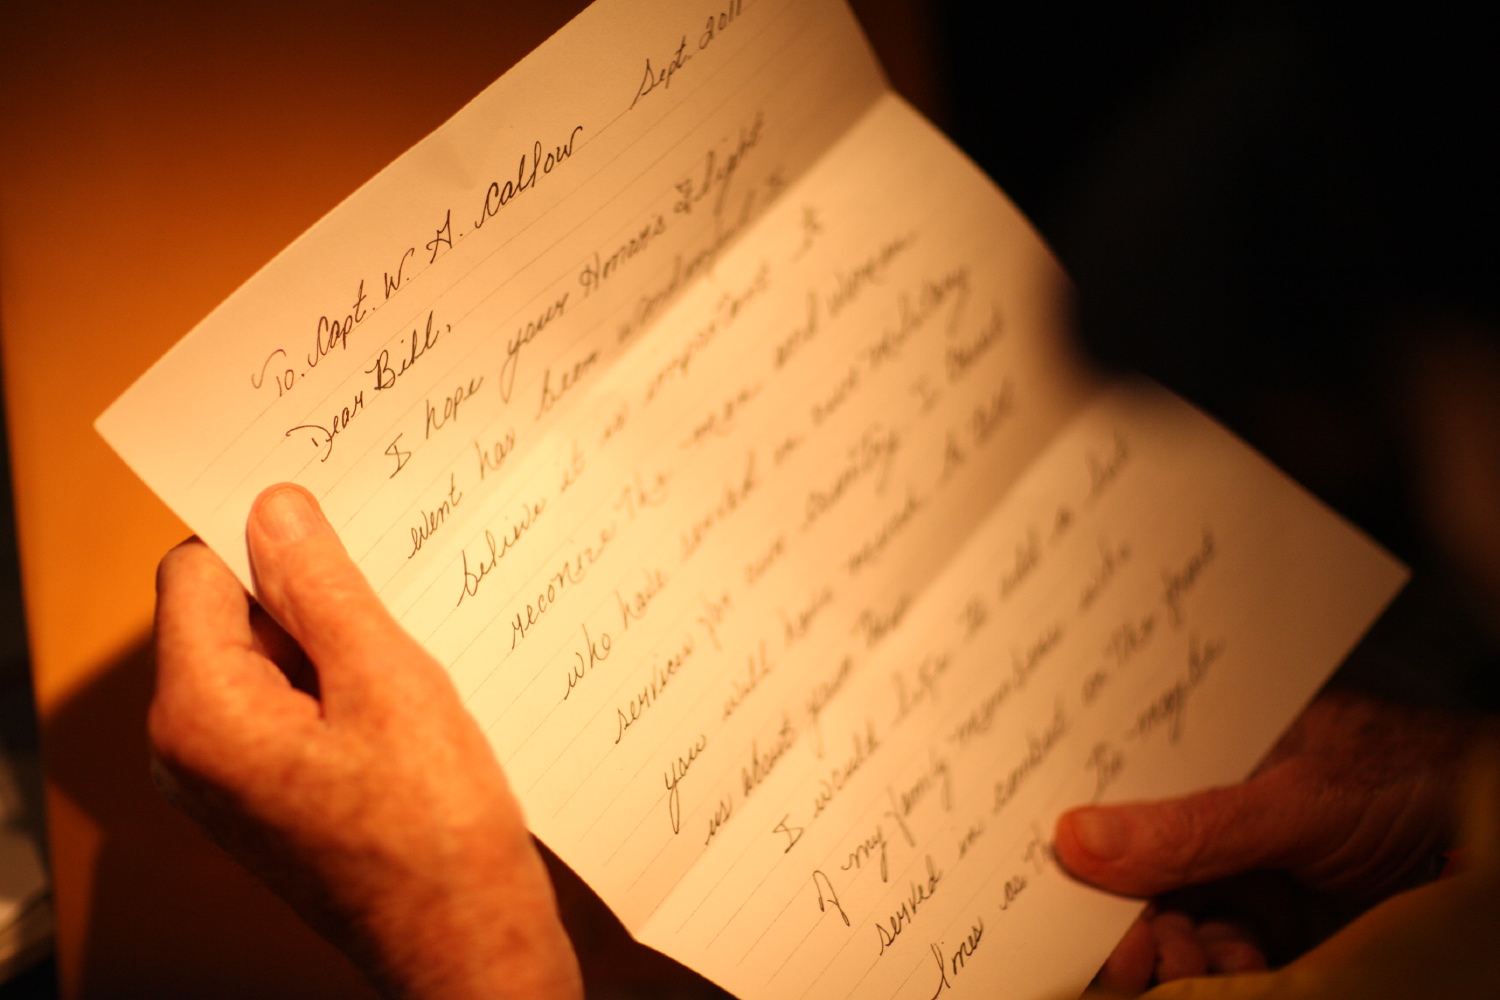 Sept. 2011
To. Capt. W. H. Callow
Dear Bill,
I hope your Honors Flight
went has been wonderful. I
believe it is important to
reconize the men and women
who have served in our military
services for our country. I trust
you will have much to tell
us about your
I would like to add a list
of my family members who
served in combat on the front
lines as the to maybe